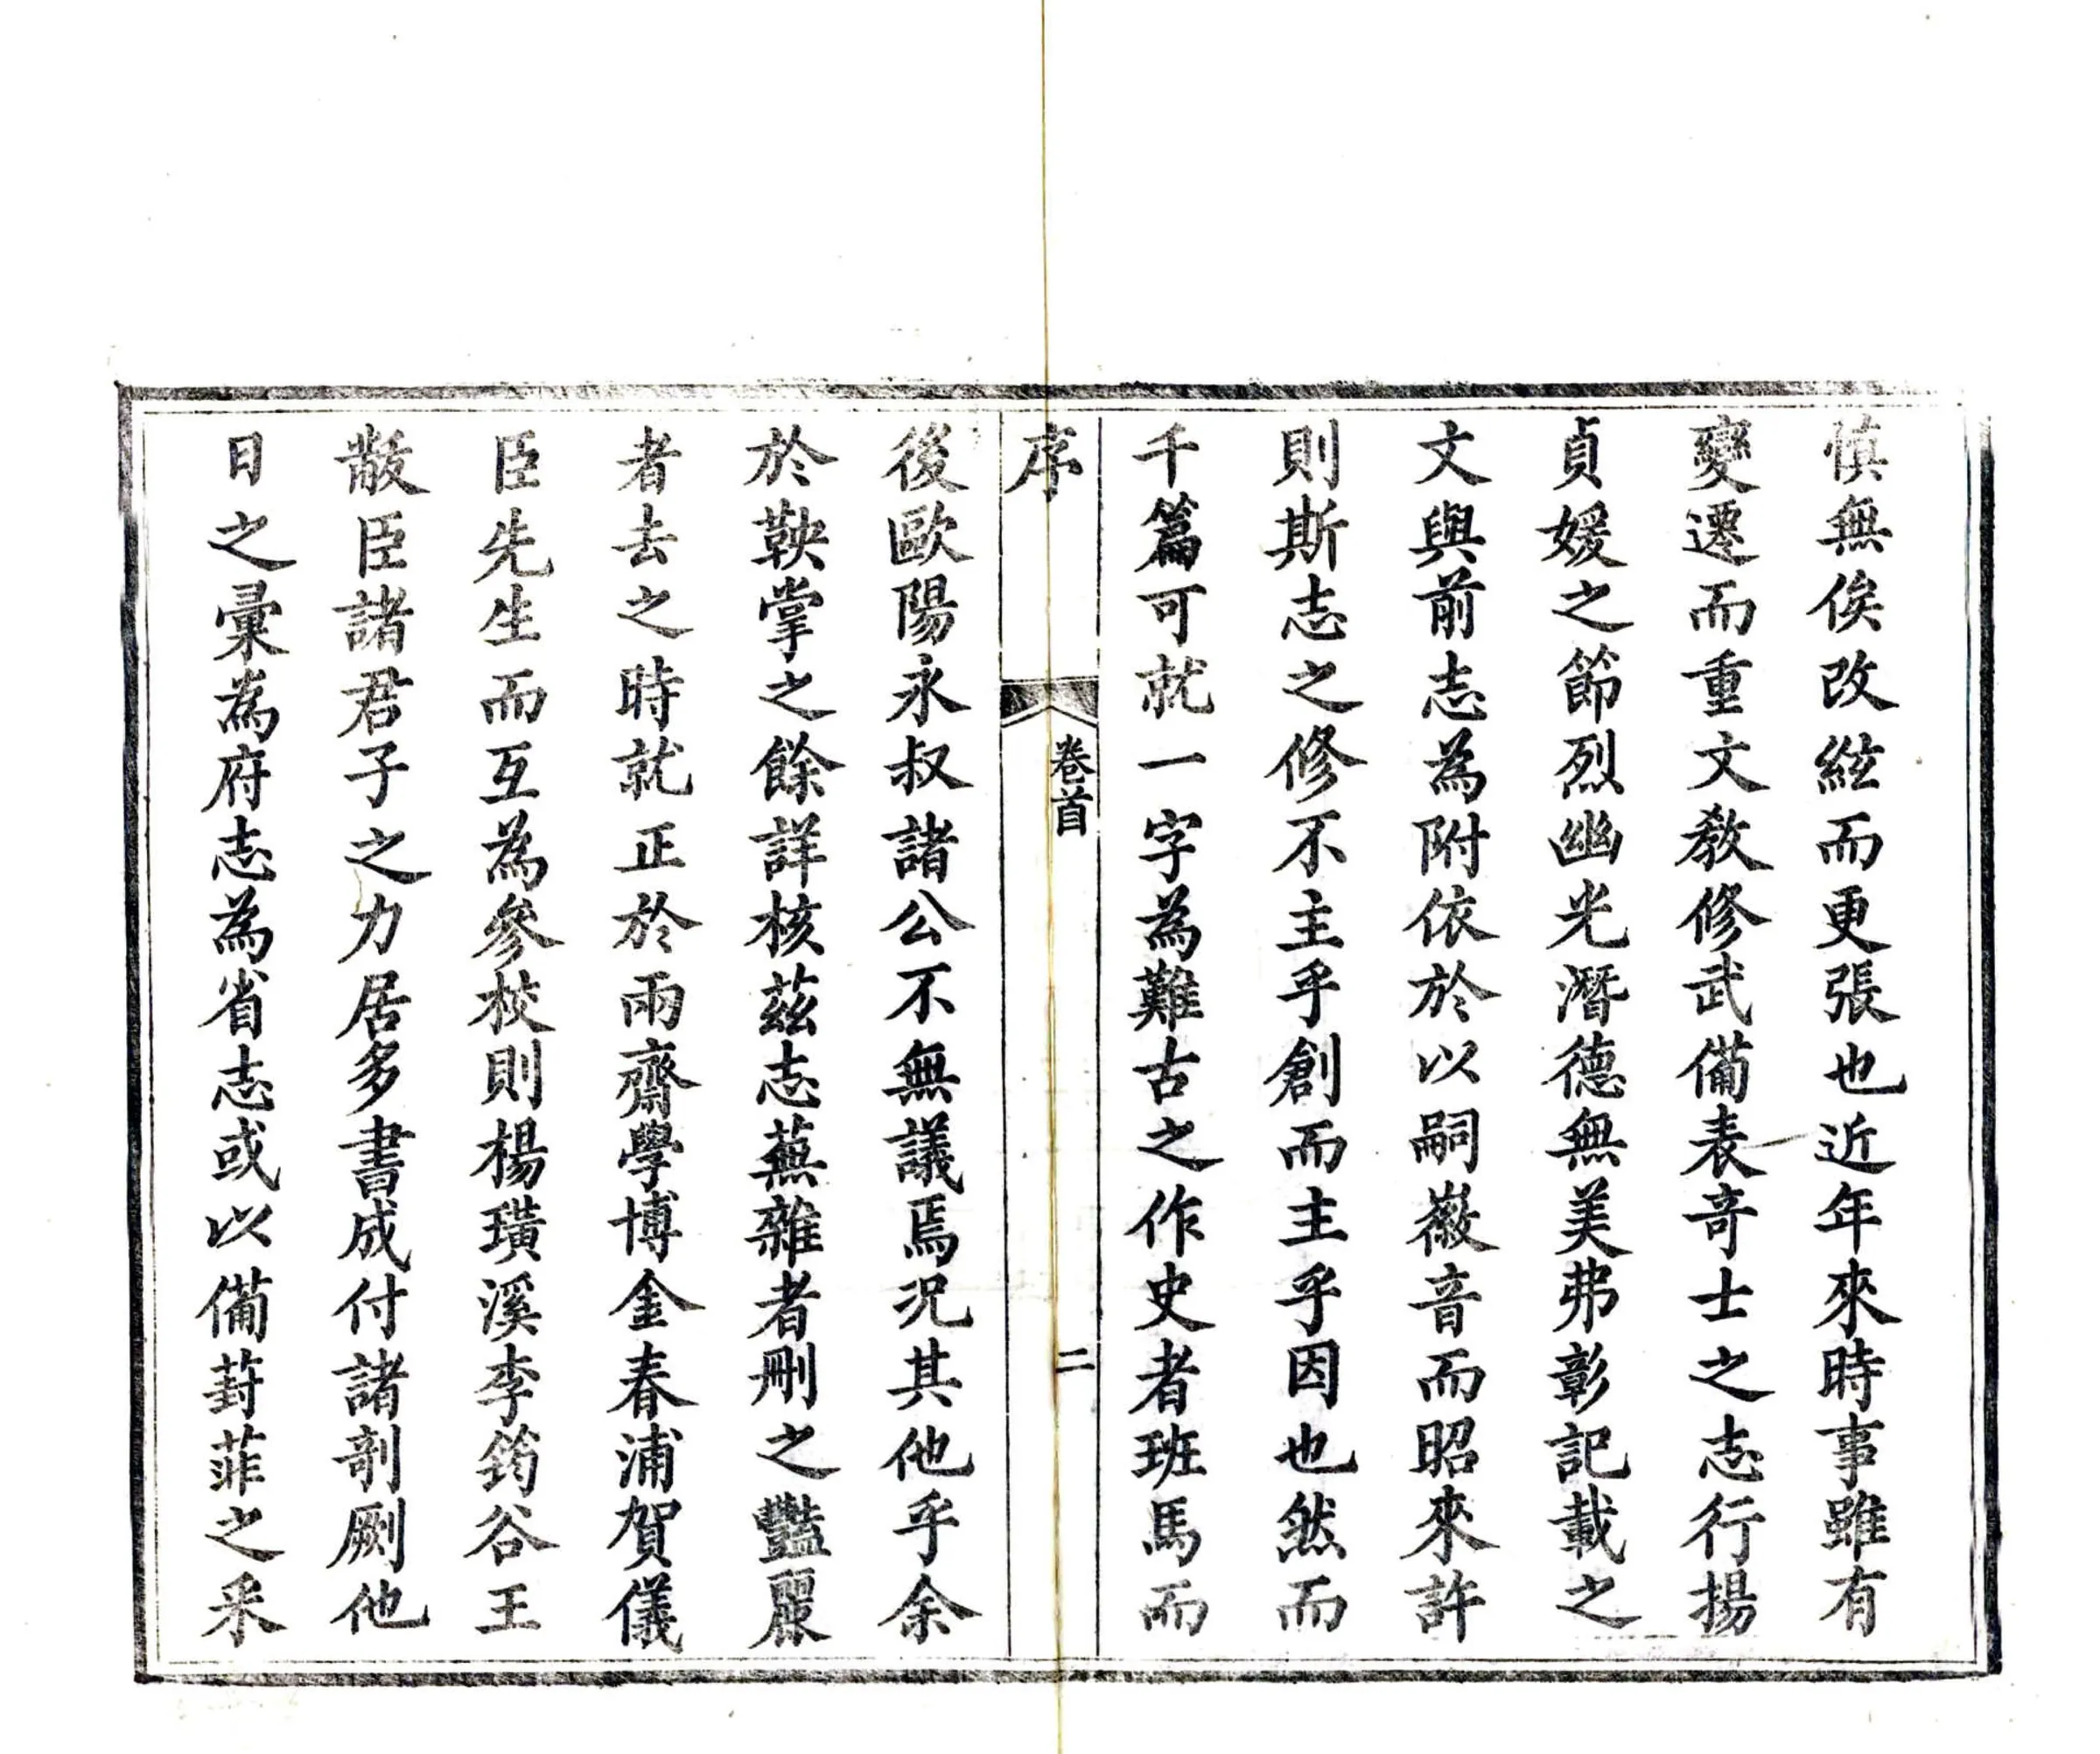 慎無俟改絃而更張也近年來時事雖有
變遷而重文教修武備表奇士之志行揚
貞媛之節烈幽光潛德無美弗彰記載之
文與前志為附依於以嗣徽音而昭來許
則斯志之修不主乎創而主乎因也然而
千篇可就一字為難古之作史者班馬而
序
卷首
二
後歐陽永叔諸公不無議焉况其他乎余
於鞅掌之餘詳核茲志蕪雜者刪之豔麗
者去之時就正於兩齋學博金春浦賀儀
臣先生而互為參校則楊璜溪李筠谷王
黻臣諸君子之力居多書成付諸剞劂他
日之彙為府志為省志或以備葑菲之采